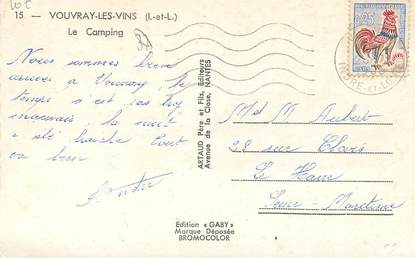 15 - VOUVRAY-LES-VINS (I.-et-L.)
Le Camping
Nous sommes bien
arrivés à Vouvray, le
temps n'est pas trop
mauvais la nuit
a été fraîche Tout
va bien
André
ARTAUD Père et Fils, Editeurs
Avenue de la Close, NANTES
Mel M. Aubert
28 rue
Le Havre
Seine-Maritime
Edition « GABY »
Marque Déposée
BROMOCOLOR
0,25
INDRE-ET-L